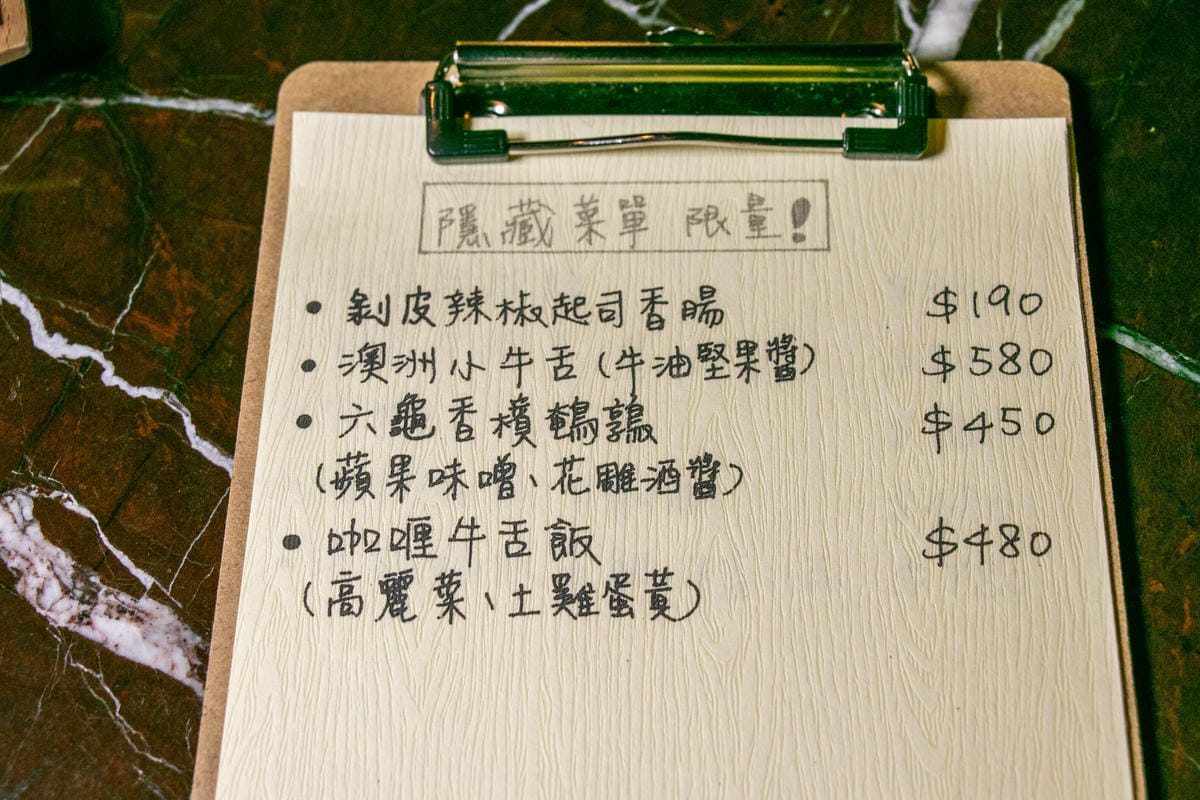 隱藏菜單 限量!
• 剝皮辣椒起司香腸 $190
• 澳洲小牛舌(牛油堅果醬) $580
• 六龜香檳鵪鶉 $450
(蘋果味噌、花雕酒醬)
• 咖喱牛舌飯 $480
(高麗菜、土雞蛋黃)